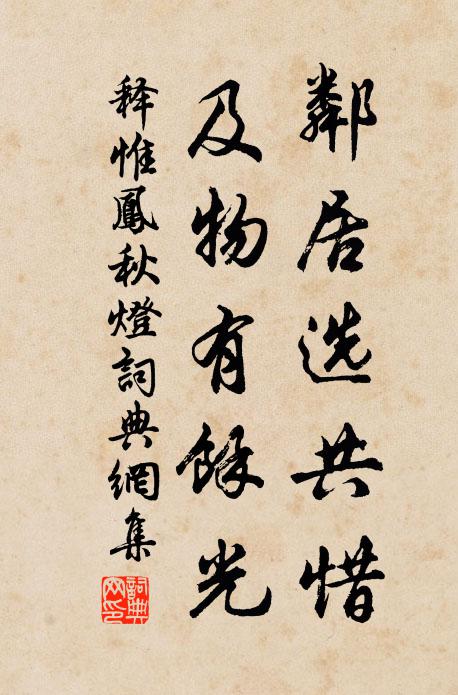 鄰居选共惜
及物有餘光
释惟鳳秋燈詞典網集
詞典